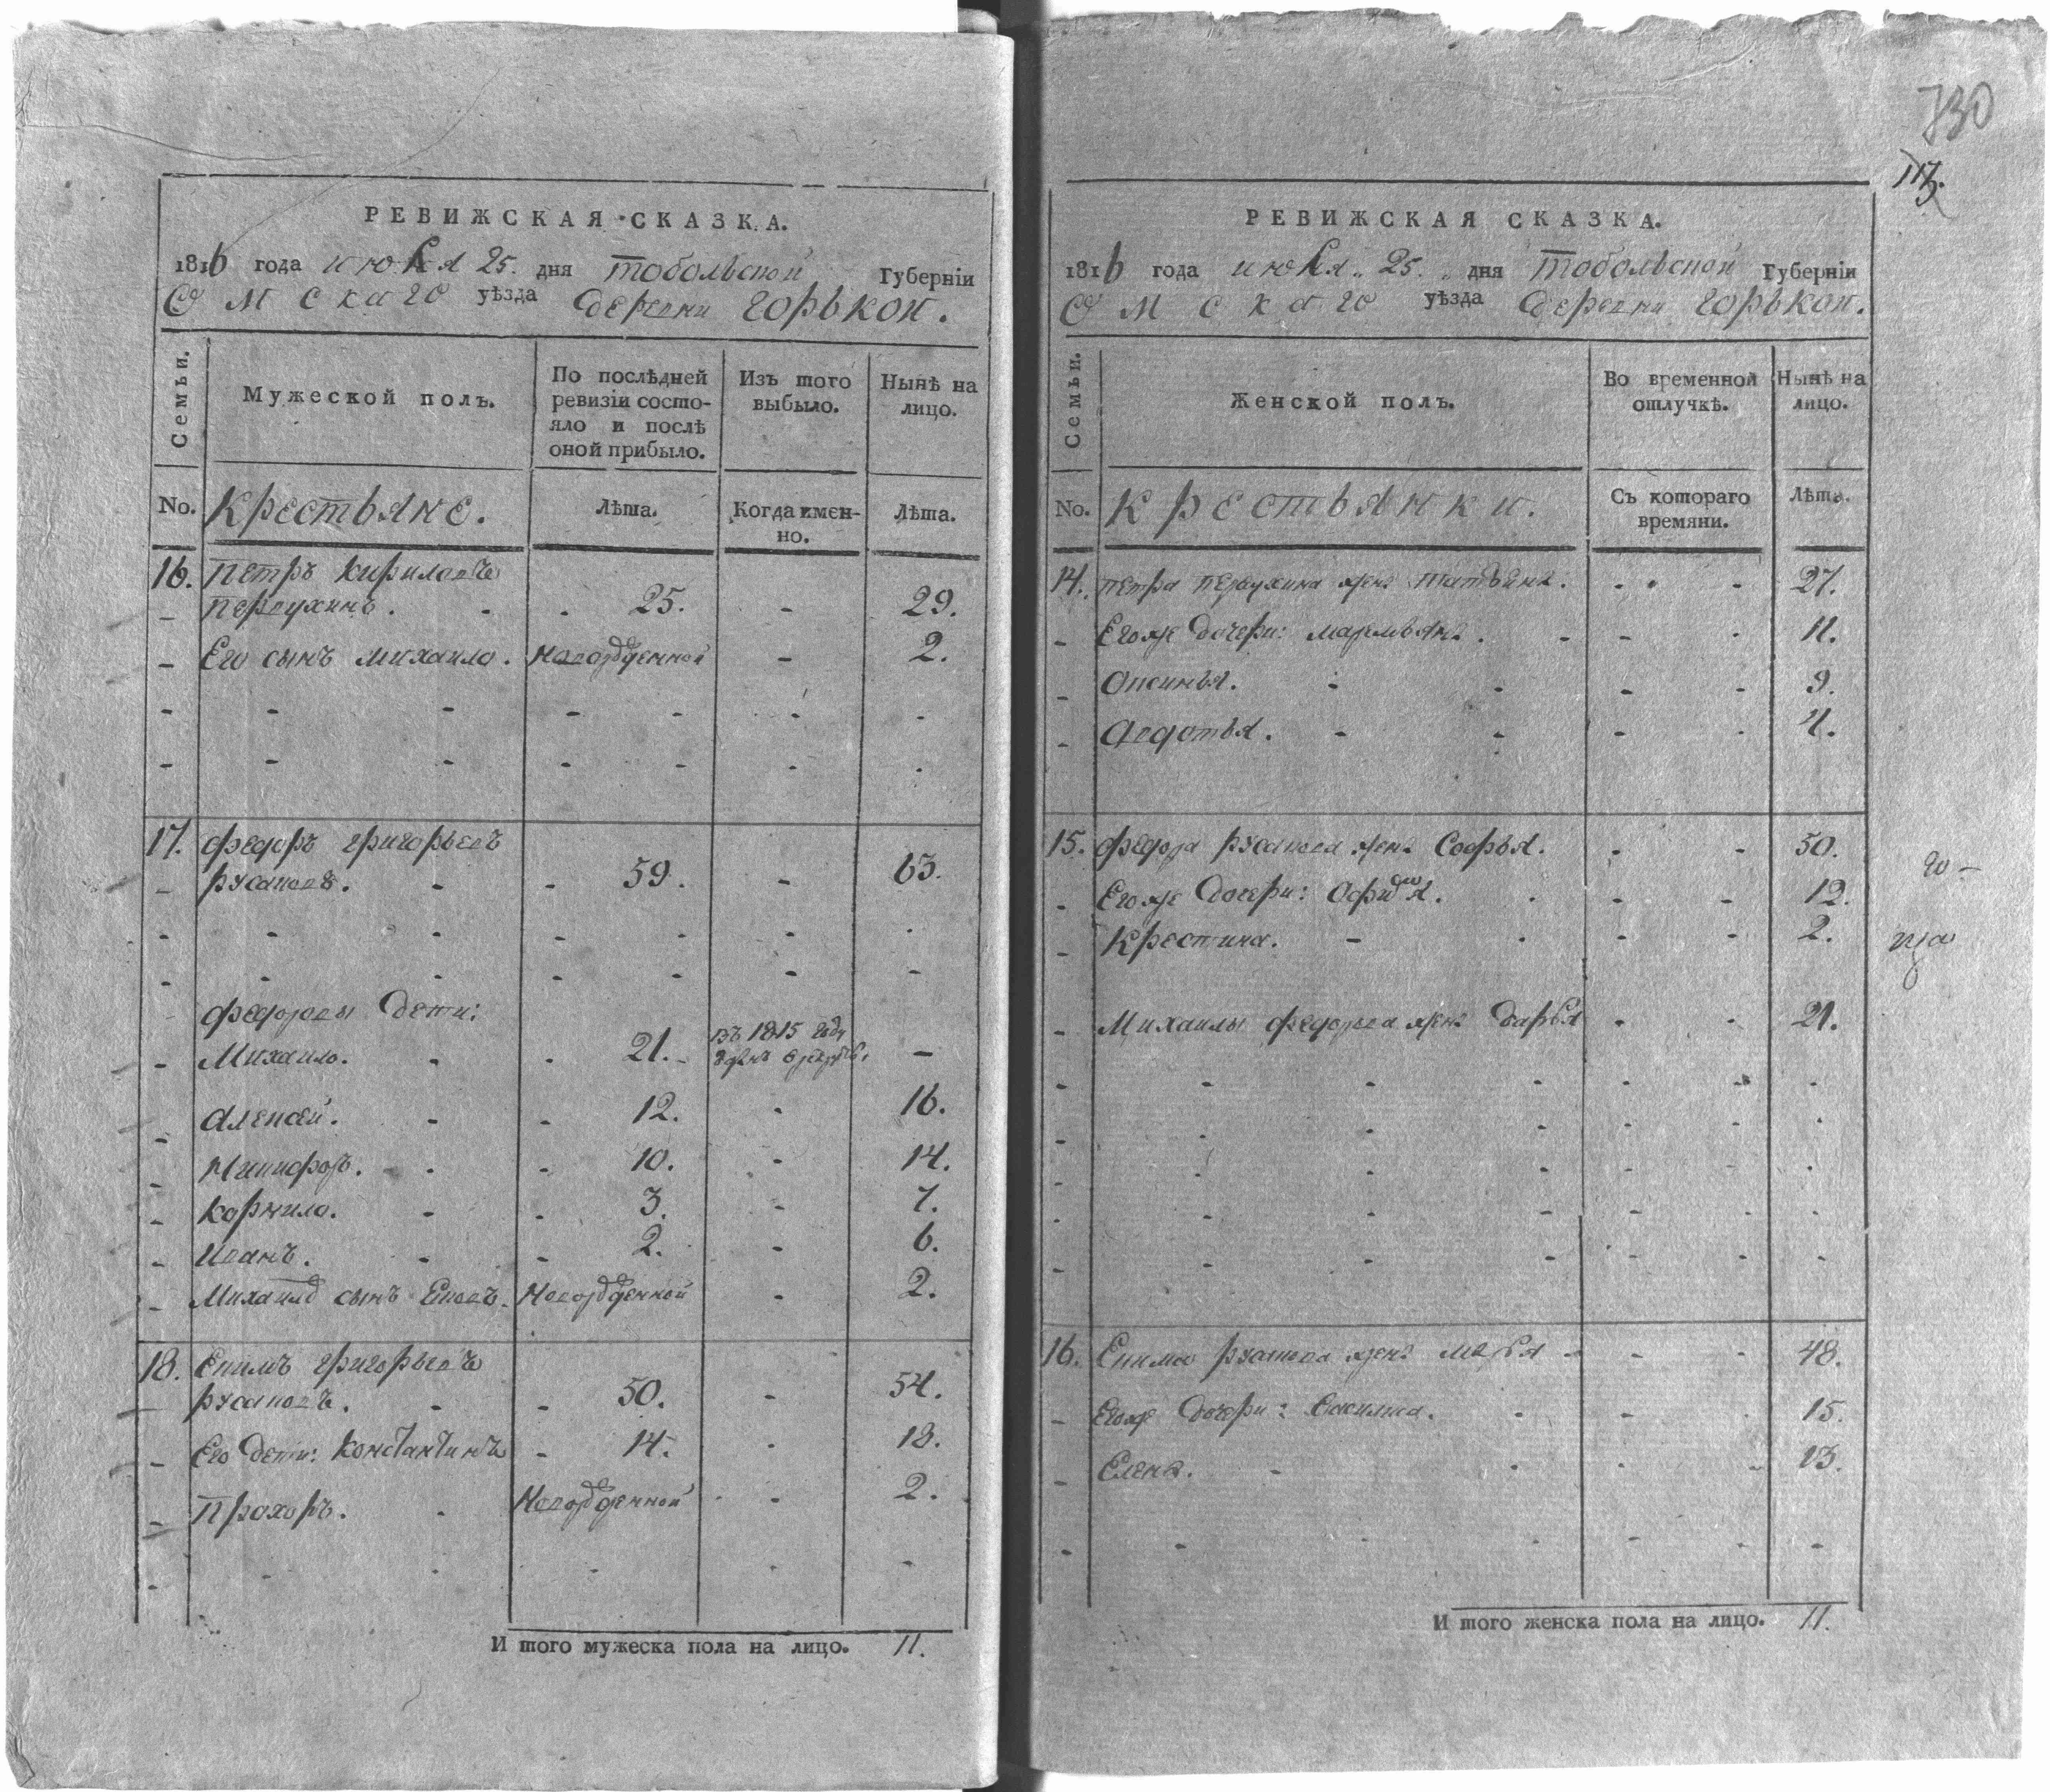 РЕВИЖСКАЯ СКАЗКА.
1816 года июля 25. дня Тобольской Губерніи
Омскаго уѣзда деревни Горькой.
Семьи.
Мужеской полъ.
По послѣдней ревизіи состо-
яло и послѣ
оной прибыло.
Изъ того выбыло.
Нынѣ на лицо.
No. Крестьяне.
Лѣта.
Когда имен-
но.
Лѣта.
16. Петръ Кириловъ
Первухинъ. 25. 29.
Его сынъ Михаило. Новорожденной 2.
17. Федоръ Григорьевъ
Русановъ. 59. 63.
Федоровы дети:
Михаило. 21. въ 1815 году
Алексей. 12. 16.
Никифоръ. 10. 14.
Корнило. 3. 7.
Иванъ. 2. 6.
Михаила сынъ Новорожденной 2.
18. Екимъ Григорьевъ
Русановъ. 50. 54.
Его дети: Константинъ 14. 18.
Прохоръ. Новорожденной 2.
И того мужеска пола на лицо. 11.
730
РЕВИЖСКАЯ СКАЗКА.
1816 года июля 25. дня Тобольской Губерніи
Омскаго уѣзда деревни Горькой.
Семьи.
Женской полъ.
Во временной отлучкѣ.
Нынѣ на лицо.
No. Крестьянки.
Съ котораго
времяни.
Лѣта.
14. Петра Первухина жена Татьяна. 27.
Егоже дочери: Маремьяна. 11.
Оксинья. 9.
Авдотья. 4.
15. Федора Русанова жена Софья. 50.
Егоже дочери: 12.
Крестина. 2.
Михаилы Федорова жена Дарья 21.
16. Екима Русанова жена Марья 48.
Егоже дочери: 15.
Елена. 13.
И того женска пола на лицо. 11.